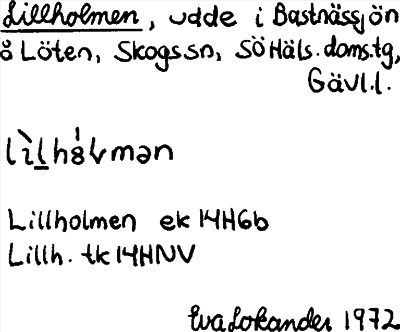 Lillholmen, udde i Bastnässjön
å Löten, Skogs sn, SÖHäls. doms.tg,
Gävl.l.
Lillholmen ek 14H6b
Lillh. tk 14HNV
Eva Lokander 1972